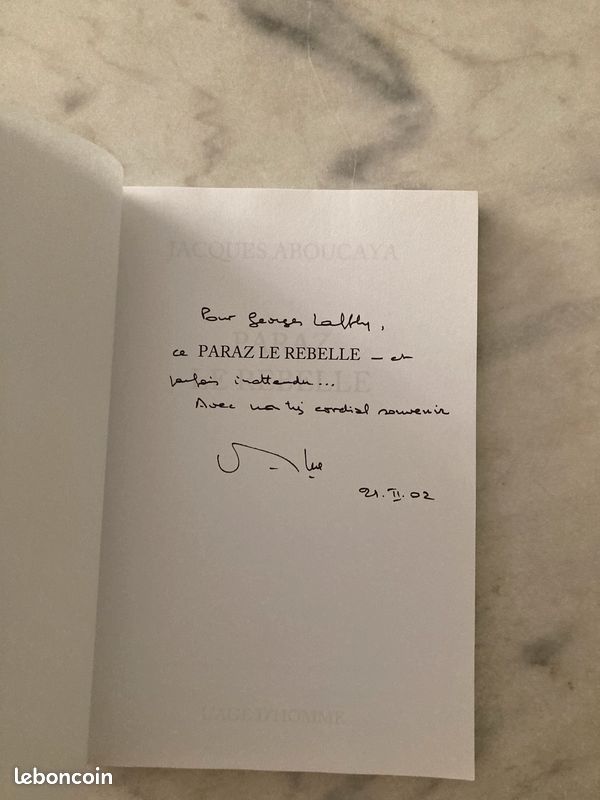 JACQUES ABOUCAYA
Pour Georges Laffly,
ce PARAZ LE REBELLE – et
parfois inattendu...
Avec mon très cordial souvenir
21.II.02
L'AGE D'HOMME
leboncoin